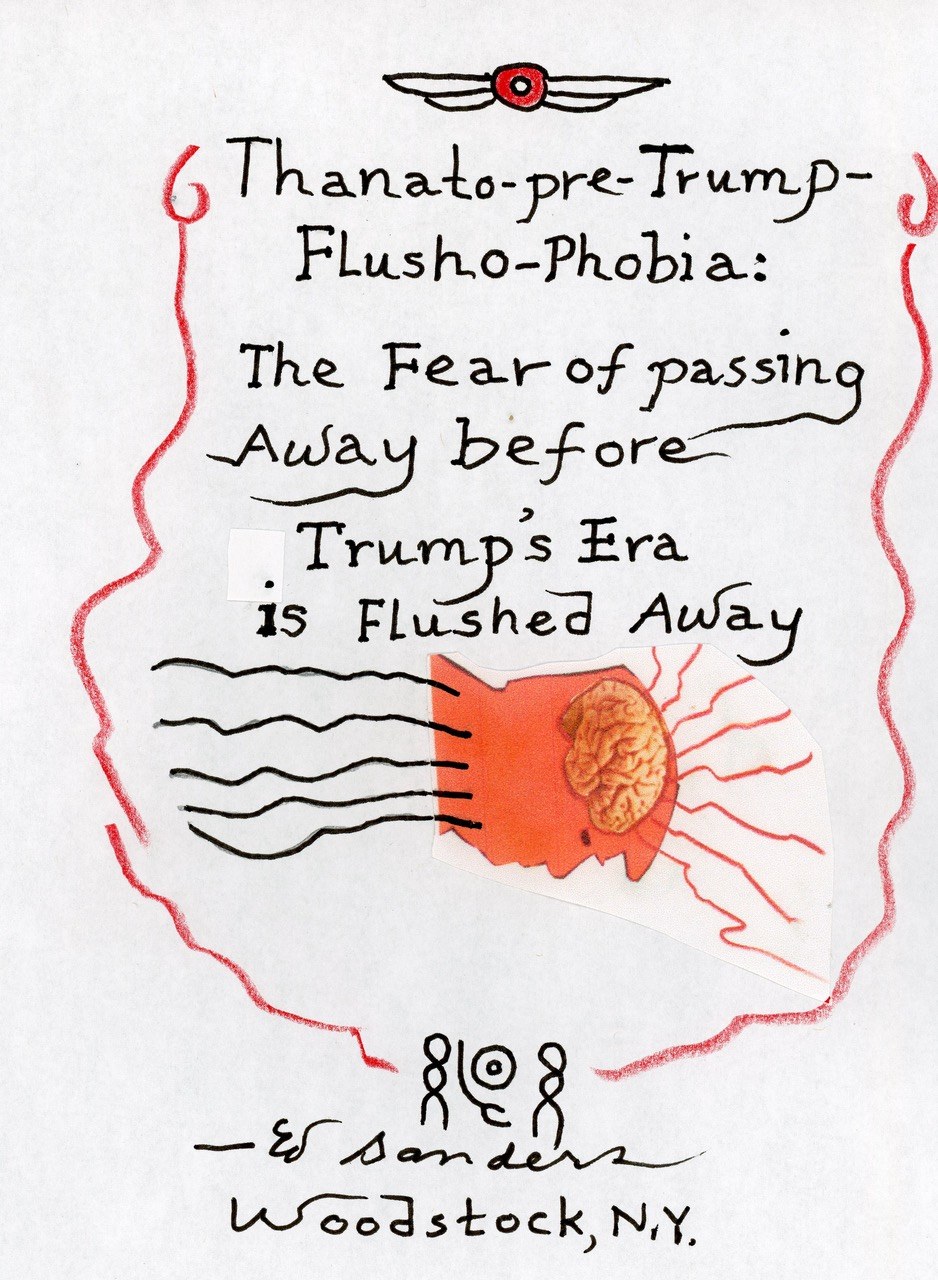 Thanato-pre-Trump-
Flusho-Phobia:
The Fear of passing
Away before
Trump's Era
is Flushed Away
— Ed Sanders
Woodstock, N.Y.